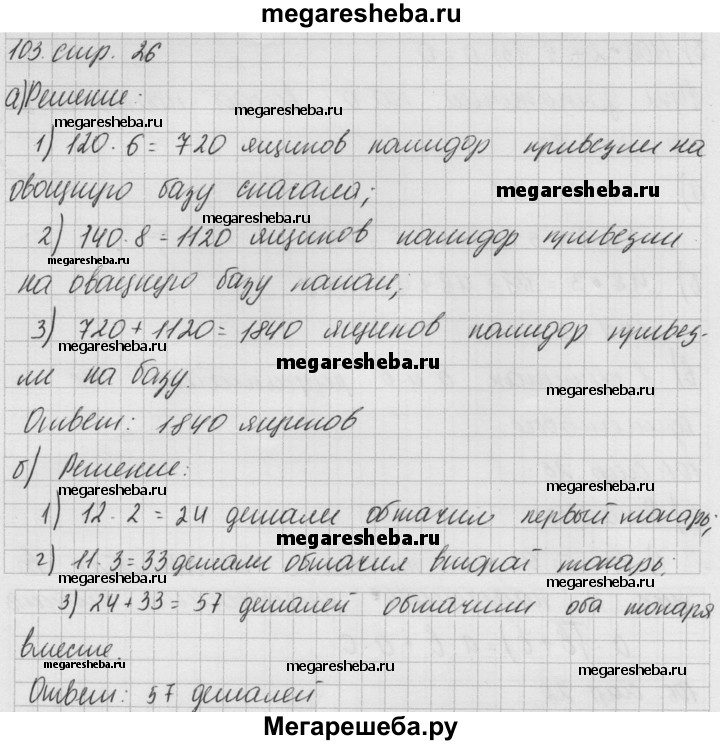 megaresheba.ru
103. стр. 26
а) Решение:
megaresheba.ru
megaresheba.ru
1) 120 · 6 = 720 ящиков помидор привезли на
овощную базу сначала;
megaresheba.ru
megaresheba.ru
2) 140 · 8 = 1120 ящиков помидор привезли
megaresheba.ru
на овощную базу потом;
3) 720 + 1120 = 1840 ящиков помидор привез-
megaresheba.ru
megaresheba.ru
ли на базу.
megaresheba.ru
Ответ: 1840 ящиков
б) Решение:
megaresheba.ru
megaresheba.ru
1) 12 · 2 = 24 детали обточил первый токарь;
megaresheba.ru
2) 11 · 3 = 33 детали обточил второй токарь;
megaresheba.ru
megaresheba.ru
3) 24 + 33 = 57 деталей обточили оба токаря
вместе.
megaresheba.ru
megaresheba.ru
megaresheba.ru
Ответ: 57 деталей
Мегарешеба.ру